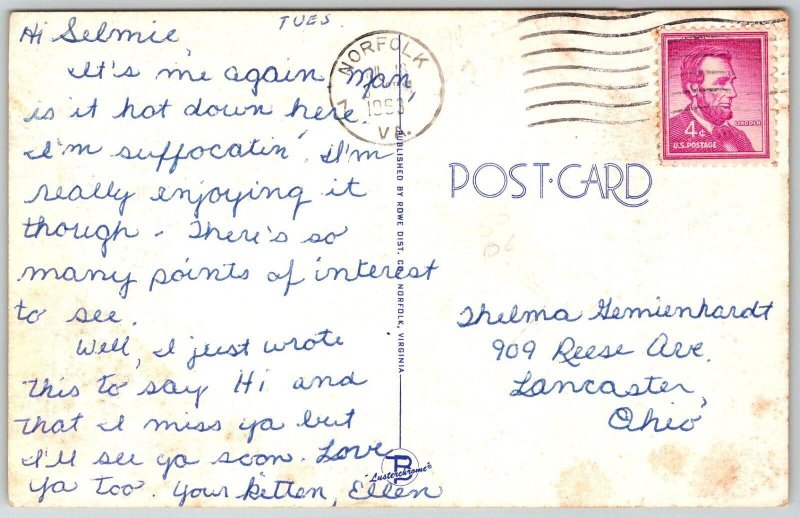 TUES.
Hi Selmie,
It's me again. Man,
is it hot down here.
I'm suffocatin'. I'm
really enjoying it
though. There's so
many points of interest
to see.
Well, I just wrote
this to say Hi and
that I miss ya but
I'll see ya soon. Love
ya too. Your Kitten, Ellen
NORFOLK
1963
VA.
4¢
LINCOLN
U.S. POSTAGE
POST-CARD
PUBLISHED BY ROWE DIST. CO. NORFOLK, VIRGINIA
"Lusterchrome"
Thelma Gemienhardt
909 Reese Ave.
Lancaster,
Ohio